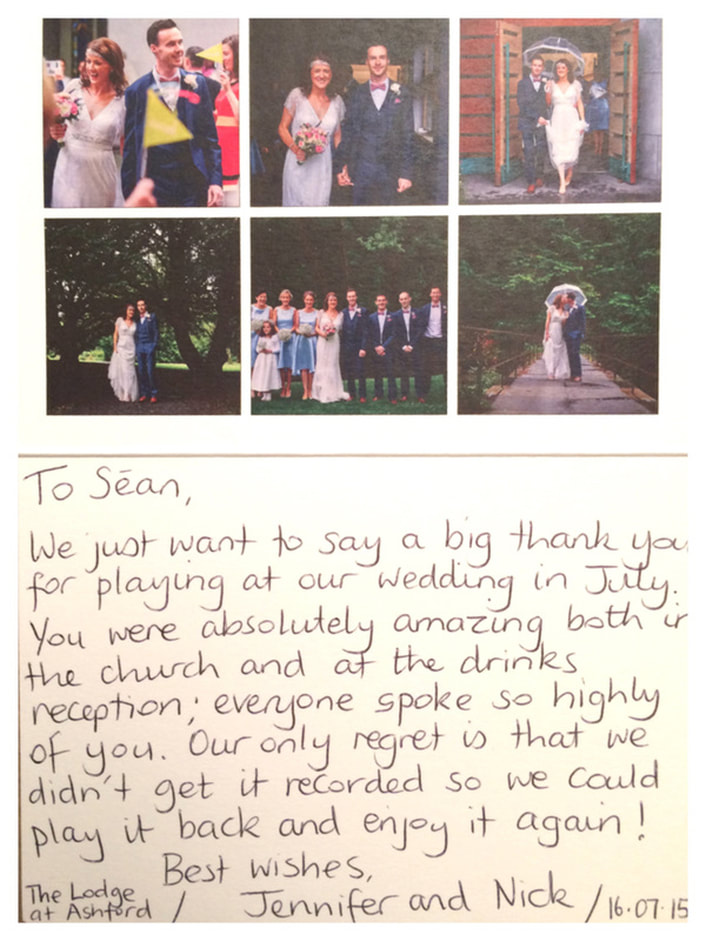 To Séan,
We just want to say a big thank you
for playing at our wedding in July.
You were absolutely amazing both in
the church and at the drinks
reception; everyone spoke so highly
of you. Our only regret is that we
didn't get it recorded so we could
play it back and enjoy it again!
Best wishes,
The Lodge
at Ashford / Jennifer and Nick / 16.07.15